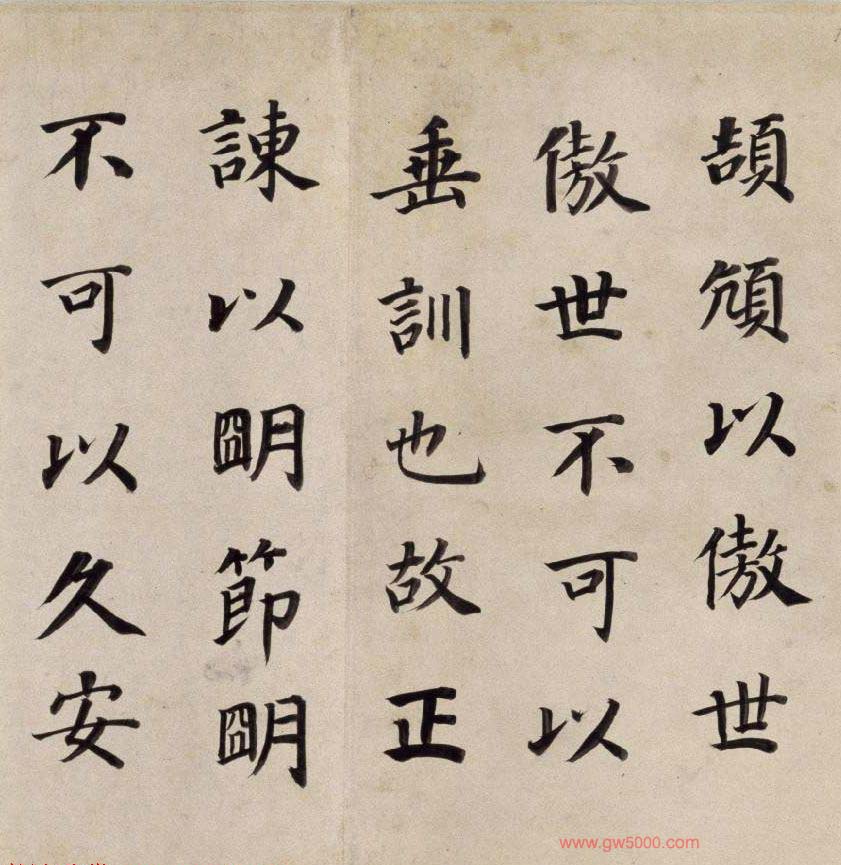 頡頏以傲世
傲世不可以
垂訓也故正
諌以朙節朙
不可以久安
www.gw5000.com